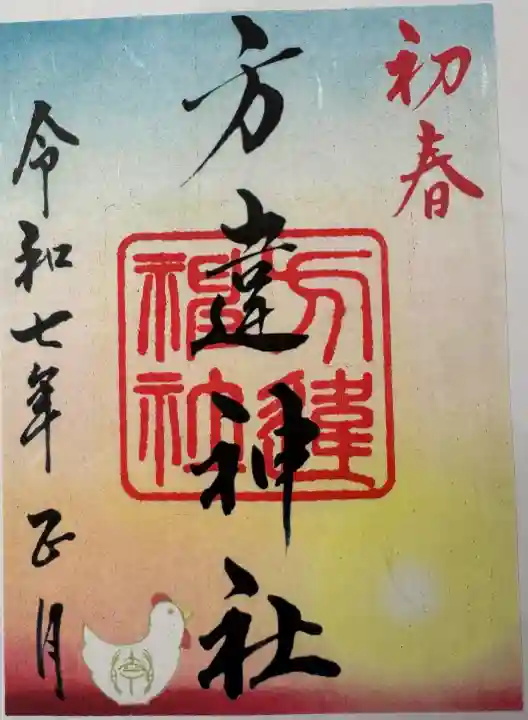 初春
方違神社
方違神社
令和七年正月